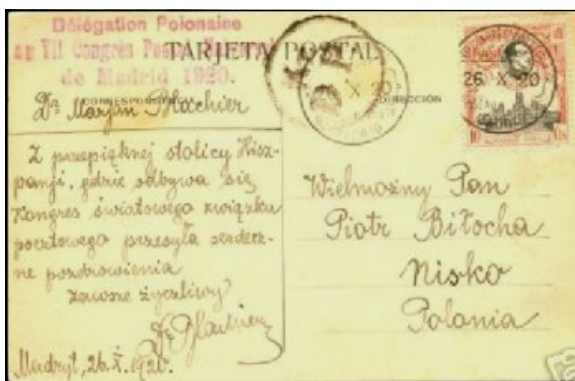 Délégation Polonaise
au VII Congrès Postal
de Madrid 1920.
TARJETA POSTAL
Dr Marjan Blachier
CORRESPONDENCIA
DIRECCIÓN
X 20
26 X 20
Z przepięknej stolicy Hisz-
panji, gdzie odbywa się
Kongres światowego związku
pocztowego przesyła serdecz-
ne pozdrowienia
zawsze życzliwy
Dr Blachier
Madryt, 26.X.1920.
Wielmożny Pan
Piotr Biłocha
Nisko
Polonia